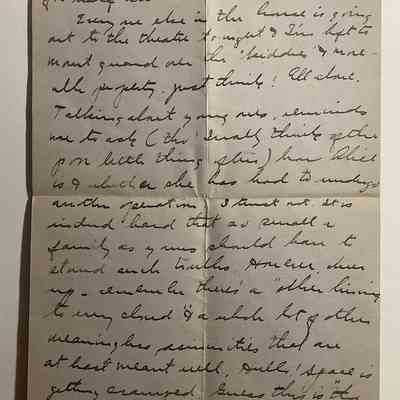 Every one else in the house is going
out to the theatre to-night & I'm left to
mount guard over the 'kiddies' & move-
able property. Just think! All alone.
Talking about young ones, reminds
me to ask (tho' I really think of the
poor little thing often) how
is & whether she has had to undergo
another operation. I trust not. It is
indeed hard that so small a
family as yours should have to
stand such troubles. However, cheer
up - remember there's a "silver lining
to every cloud" & a whole lot of other
meaningless asininities that are
at least meant well. Hulls! Space is
getting cramped. Guess this is "the